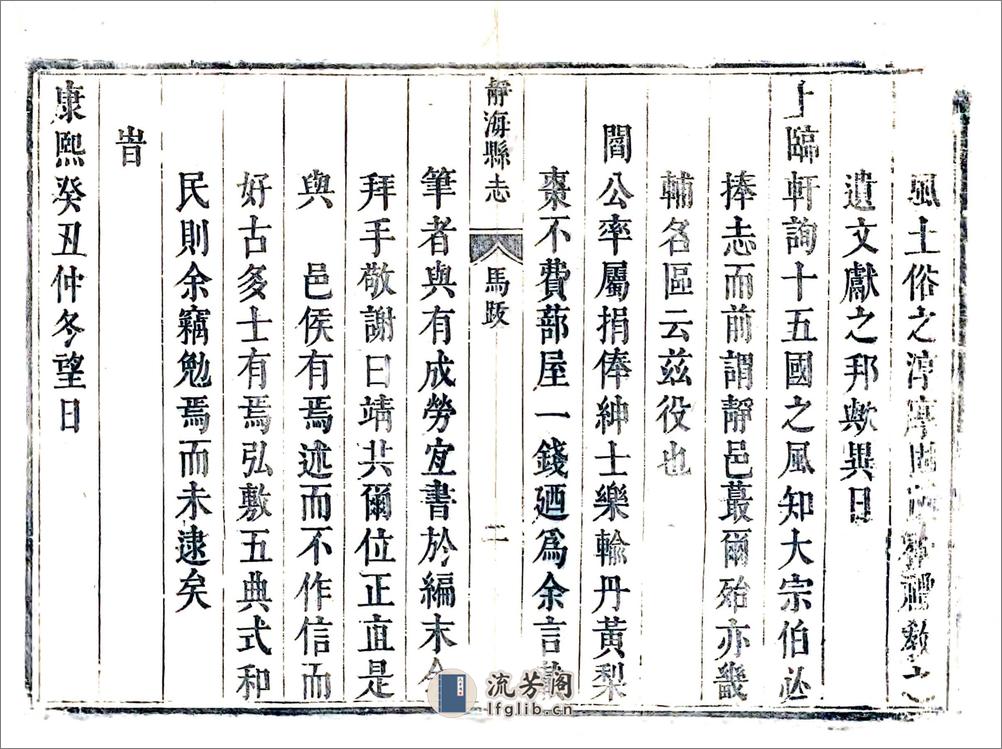 風土俗之淳
遺文獻之邦歟異日
上臨軒詢十五國之風知大宗伯必
捧志而前謂靜邑蕞爾殆亦畿
輔名區云茲役也
閻公率屬捐俸紳士樂輸丹黃梨
棗不費蔀屋一錢廼爲余言
靜海縣志
馬跋
二
筆者與有成勞宜書於編末余
拜手敬謝曰靖共爾位正直是
與 邑侯有焉述而不作信而
好古多士有焉弘敷五典式和
民則余竊勉焉而未逮矣
旹
康熙癸丑仲冬望日
流芳阁
lfglib.cn